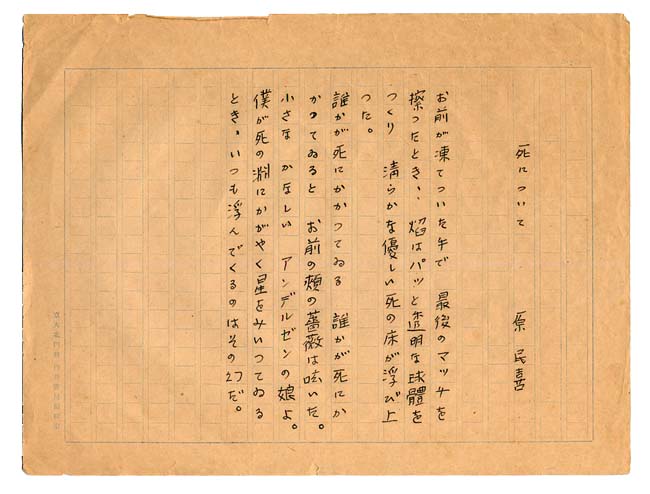 死について
原民喜
お前が凍てついた手で 最後のマッチを
擦ったとき、焔はパッと透明な球體を
つくり 清らかな優しい死の床が浮び上
った。
誰かが死にかかつてゐる 誰かが死にか
かつてゐると お前の頰の薔薇は呟いた。
小さな かなしい アンデルゼンの娘よ。
僕が死の淵にかがやく星をみいつてゐる
とき、いつも浮んでくるのはその幻だ。